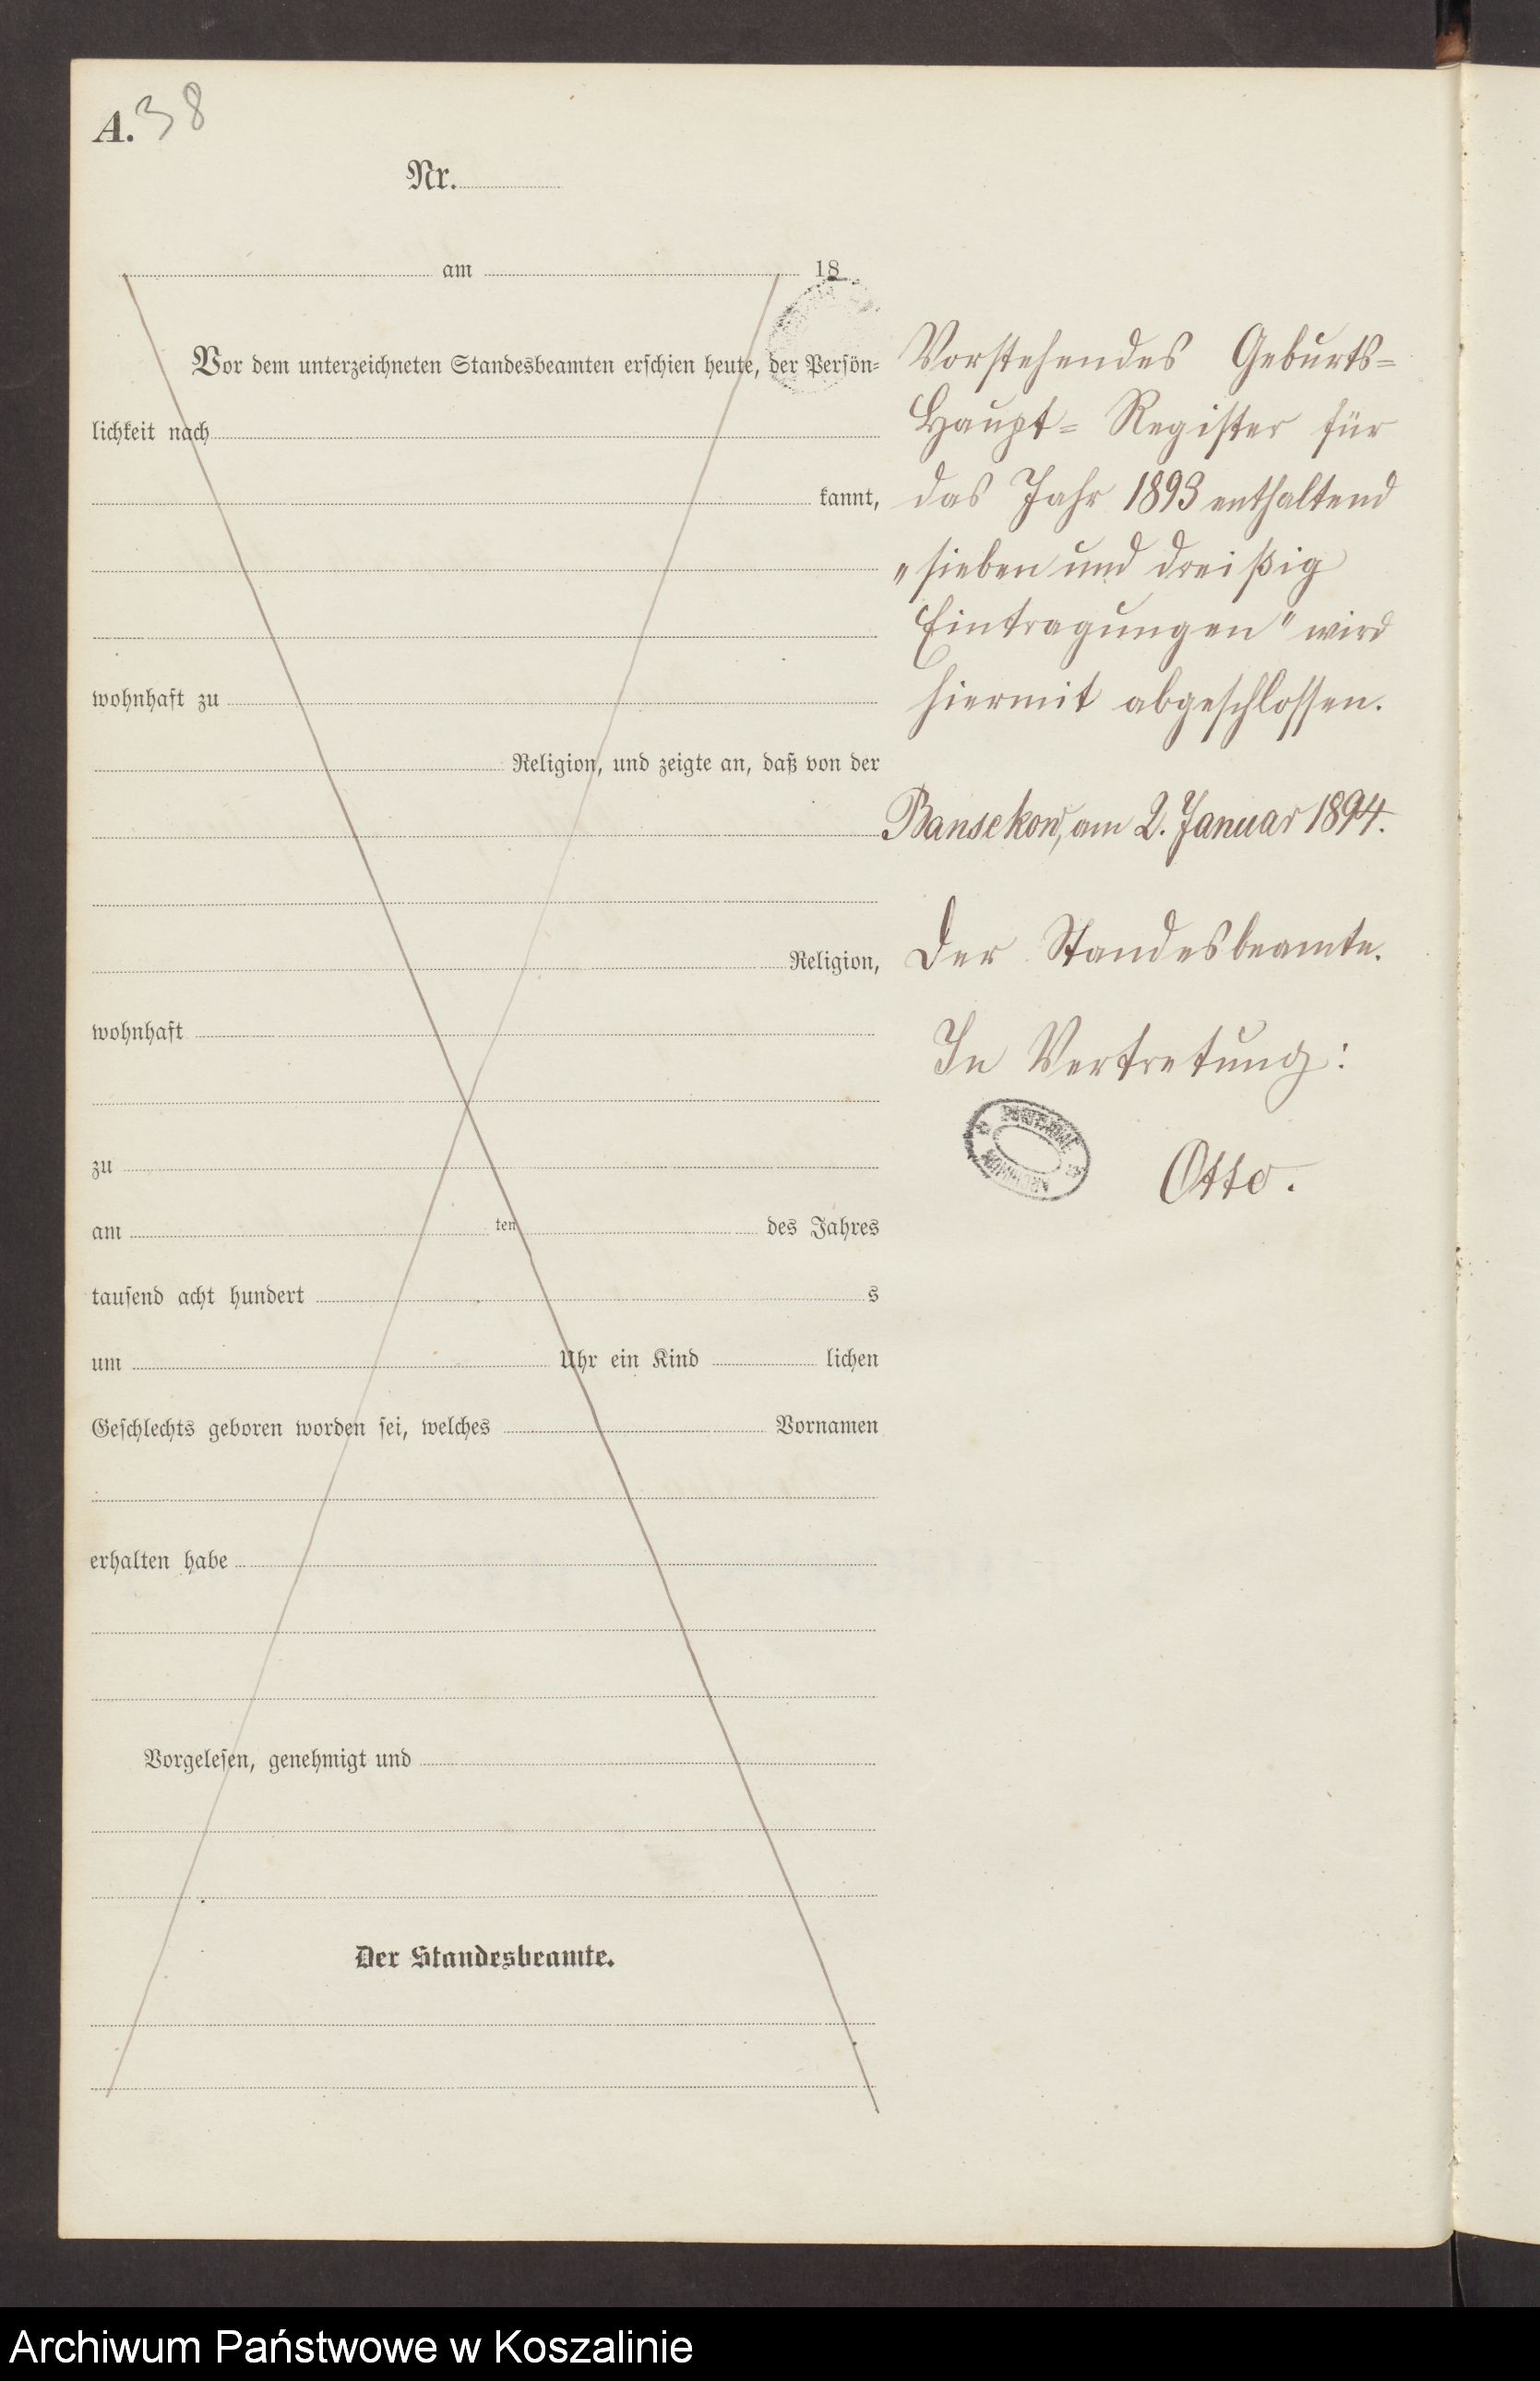 A. 38
Nr.
am 18
Vor dem unterzeichneten Standesbeamten erschien heute, der Persön=
lichkeit nach
kannt,
wohnhaft zu
Religion, und zeigte an, daß von der
Religion,
wohnhaft
zu
am ten des Jahres
tausend acht hundert s
um Uhr ein Kind lichen
Geschlechts geboren worden sei, welches Vornamen
erhalten habe
Vorgelesen, genehmigt und
Der Standesbeamte.
Vorstehendes Geburts=
Haupt= Register für
das Jahr 1893 enthaltend
„sieben und dreißig
Eintragungen" wird
hiermit abgeschlossen.
Bansekow, am 2. Januar 1894.
Der Standesbeamte.
In Vertretung:
Otto.
Archiwum Państwowe w Koszalinie